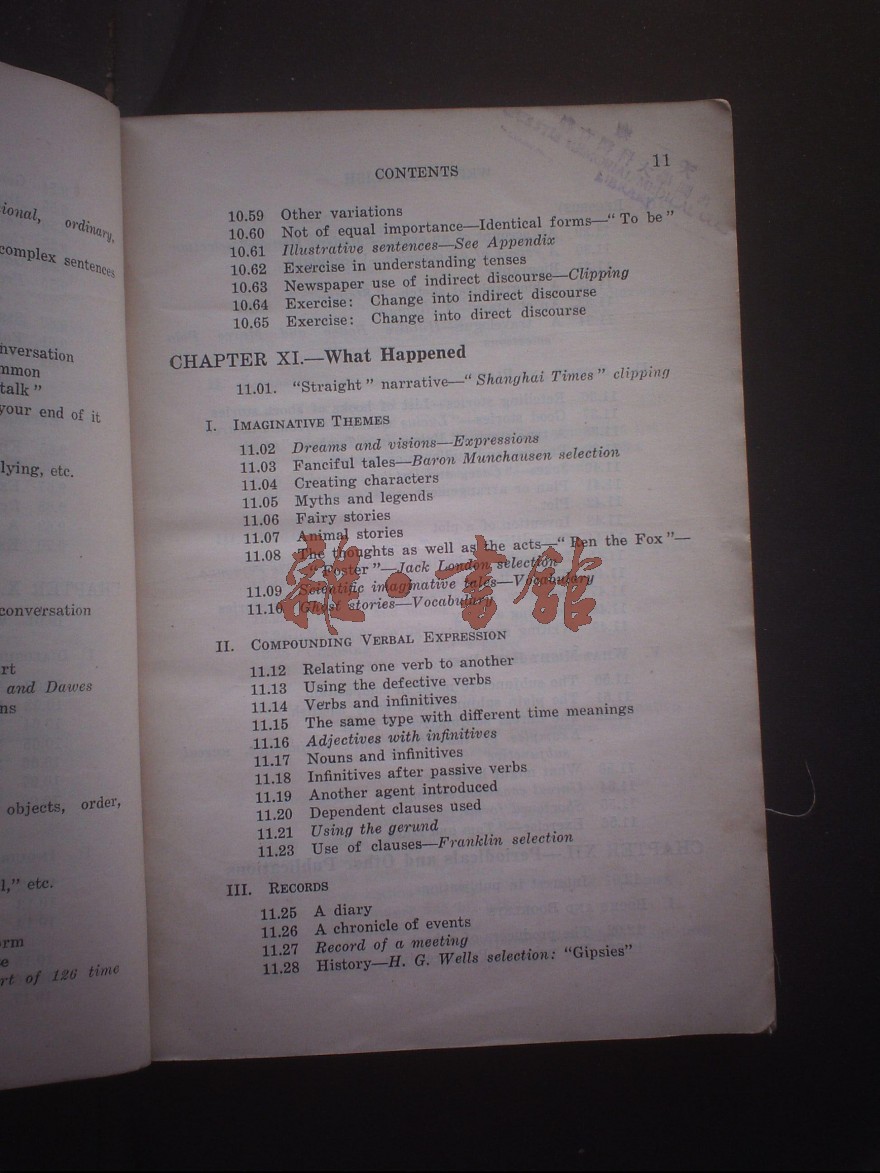 ional, ordinary,
complex sentences
nversation
mmon
talk"
your end of it
lying, etc.
conversation
rt
and Dawes
ns
objects, order,
l," etc.
orm
e
rt of 126 time
CONTENTS 11
10.59 Other variations
10.60 Not of equal importance—Identical forms—"To be"
10.61 Illustrative sentences—See Appendix
10.62 Exercise in understanding tenses
10.63 Newspaper use of indirect discourse—Clipping
10.64 Exercise: Change into indirect discourse
10.65 Exercise: Change into direct discourse
CHAPTER XI.—What Happened
11.01. "Straight" narrative—"Shanghai Times" clipping
I. IMAGINATIVE THEMES
11.02 Dreams and visions—Expressions
11.03 Fanciful tales—Baron Munchausen selection
11.04 Creating characters
11.05 Myths and legends
11.06 Fairy stories
11.07 Animal stories
11.08 The thoughts as well as the acts—"Ren the Fox"—
"Foster"—Jack London selection
11.09 Scientific imaginative tales—Vocabulary
11.10 Ghost stories—Vocabulary
雜·書館
II. COMPOUNDING VERBAL EXPRESSION
11.12 Relating one verb to another
11.13 Using the defective verbs
11.14 Verbs and infinitives
11.15 The same type with different time meanings
11.16 Adjectives with infinitives
11.17 Nouns and infinitives
11.18 Infinitives after passive verbs
11.19 Another agent introduced
11.20 Dependent clauses used
11.21 Using the gerund
11.23 Use of clauses—Franklin selection
III. RECORDS
11.25 A diary
11.26 A chronicle of events
11.27 Record of a meeting
11.28 History—H. G. Wells selection: "Gipsies"